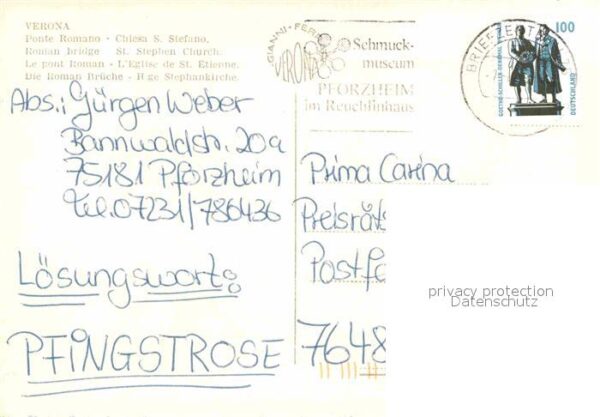 VERONA
Ponte Romano - Chiesa S. Stefano.
Roman bridge - St. Stephen Church.
Le pont Romain - L'Eglise de St. Etienne.
Die Roman Brüche - H.ge Stephankirche.
Abs.: Jürgen Weber
Bannwaldstr. 20a
75181 Pforzheim
Tel. 07231/786436
Lösungswort:
PFINGSTROSE
VERONA
Schmuck-
museum
PFORZHEIM
im Reuchlinhaus
BRIEFZENTRUM
100
GOETHE-SCHILLER-DENKMAL
DEUTSCHLAND
Prima Carina
Preisräts
Postfa
7648
privacy protection
Datenschutz